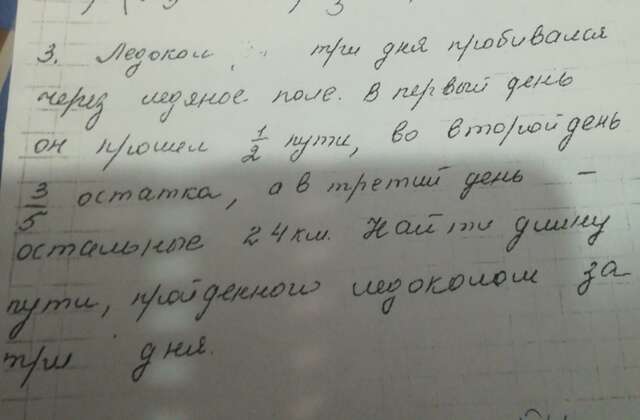 3. Ледокол три дня пробивался
через ледяное поле. В первый день
он прошел 1/2 пути, во второй день
3/5 остатка, а в третий день –
остальные 24 км. Найти длину
пути, пройденного ледоколом за
три дня.